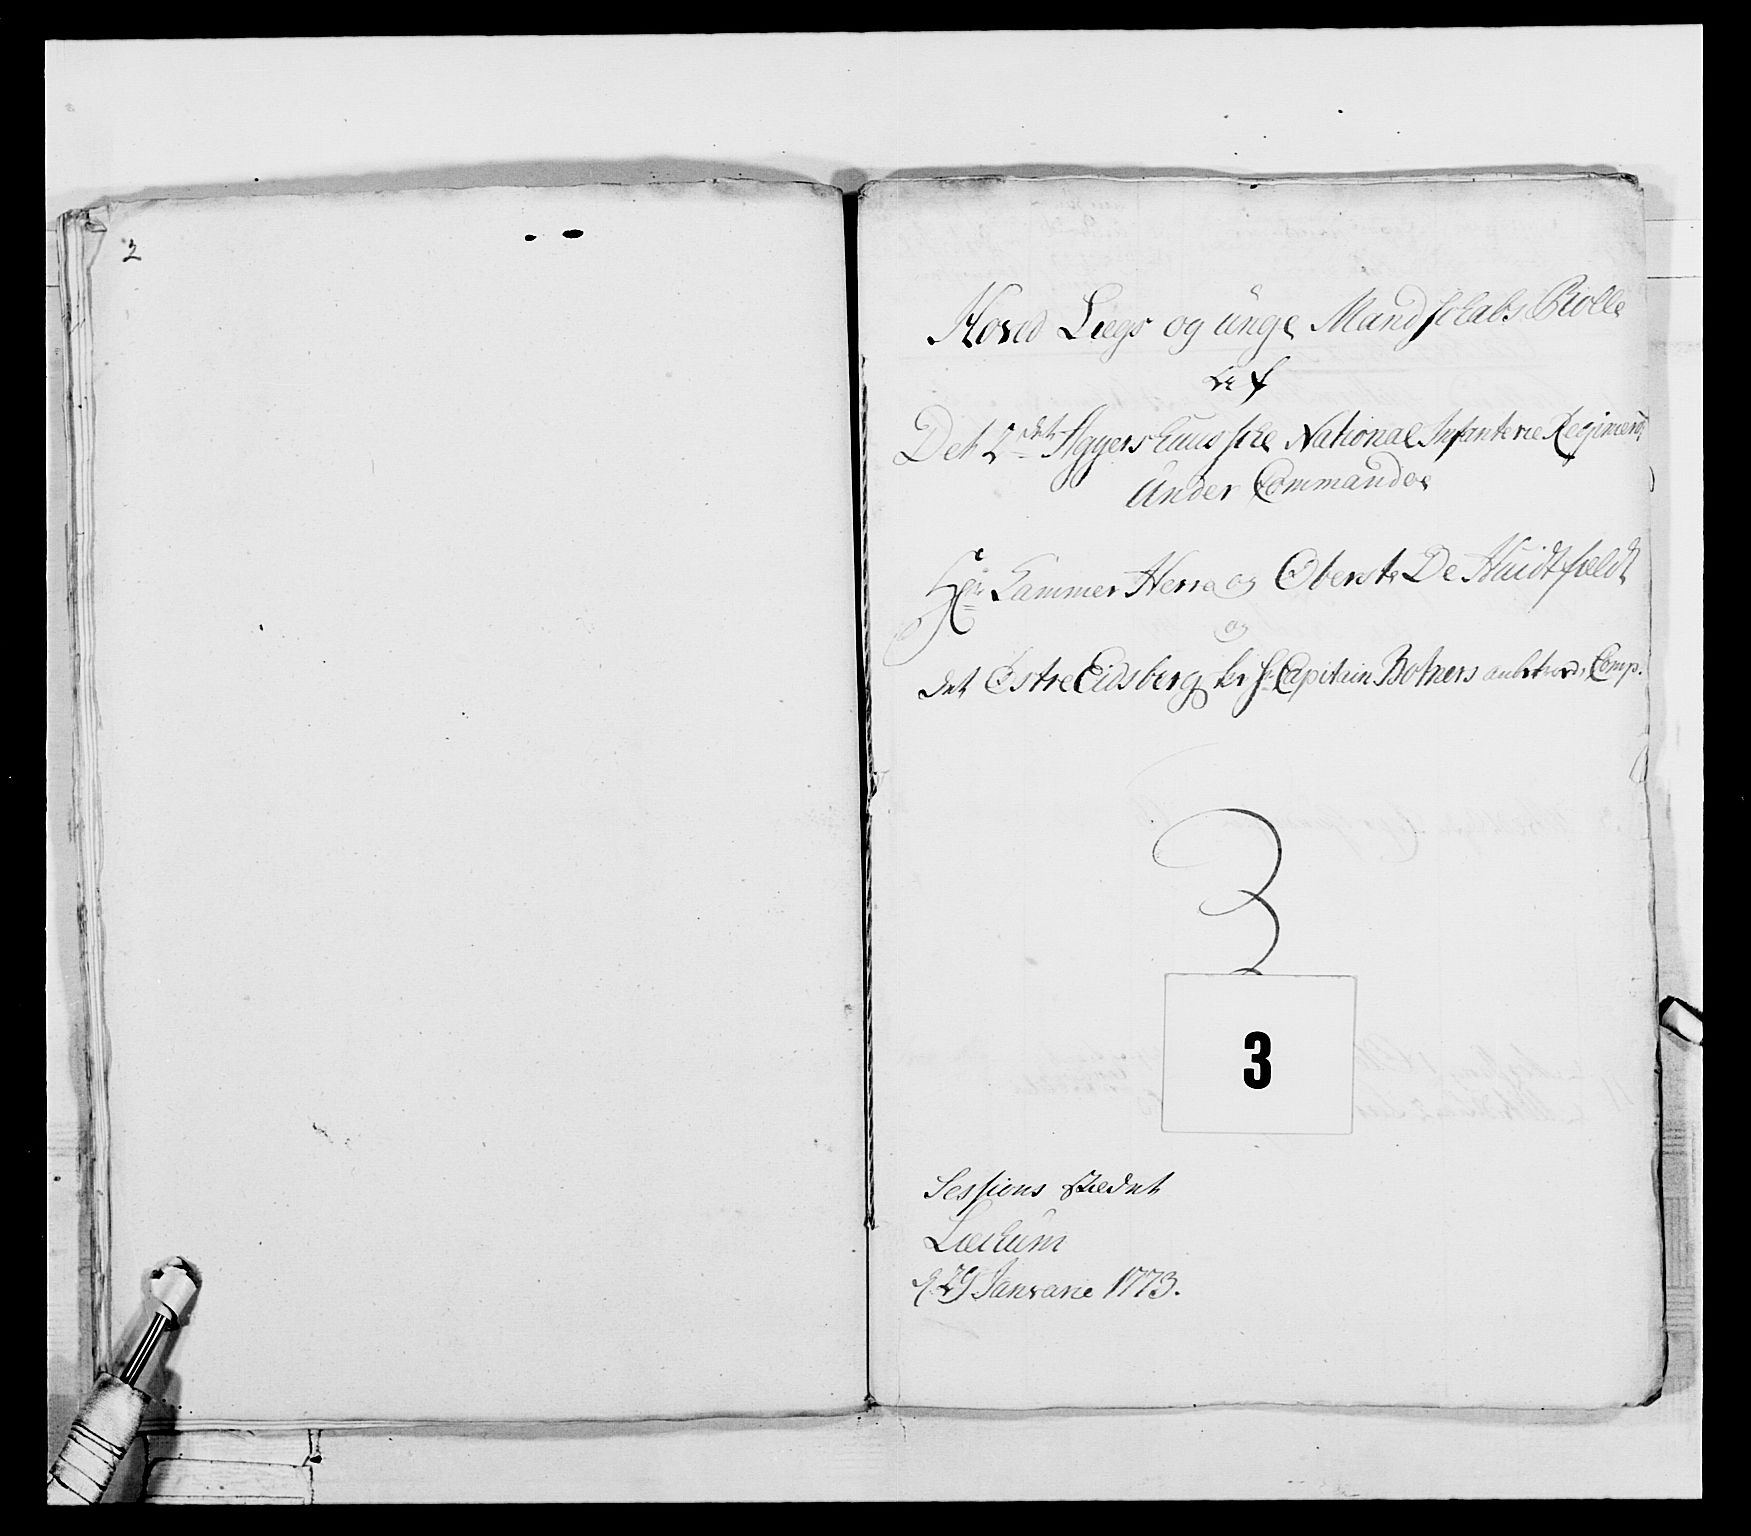 2
Hoved Lægs og unge Mandskabs Rolle
Af
Det 2det Aggershuusske National Infanterie Regiment
Under Commando
Hr Kammer Herre og Oberste De Huidtfeldt
og
det Østre Eidsberg ske Hr Capitain Bothers anbetroede Comp.
3
3
Sessions stædet
Lækum
d. 29 Januarie 1773.